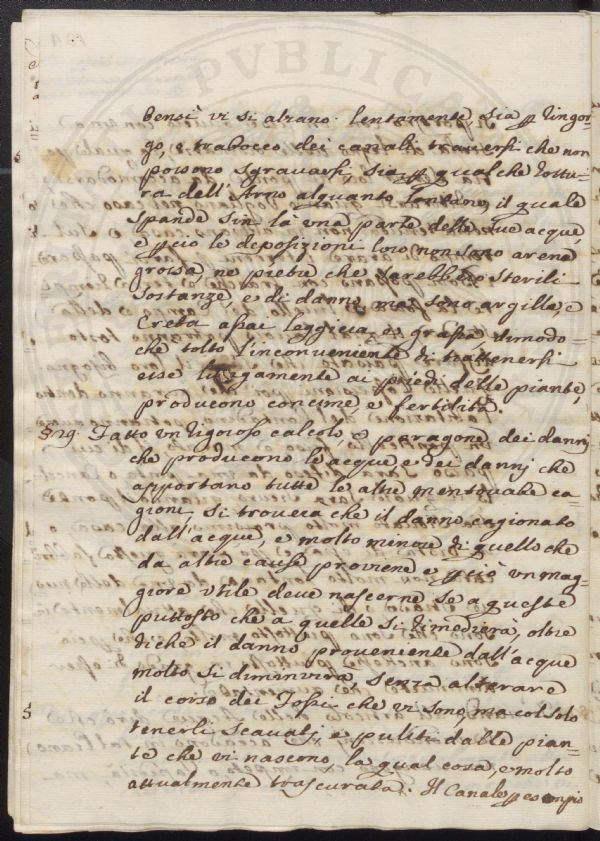 bensì vi si alzano lentamente sia p l'ingor-
go, e trabocco dei canali traversi che non
possono sgravarsi, sia p qualche rottu-
ra dell'Arno alquanto lontano, il quale
spande sin là una parte delle sue acque,
e pciò le deposizioni loro non sono arena
grossa, ne pietre che sarebbero sterili
sostanze, e di danno, ma sono argilla, e
Creta assai leggiera, e grassa, dimodo-
che tolto l'inconveniente di trattenersi
esse lungamente ai piedi delle piante,
producono concime, e fertilità.
§ 19. Fatto un rigoroso calcolo, e paragone dei dannj
che producono le acque e dei dannj che
apportano tutte le altre mentovate ca-
gioni si troverà che il danno cagionato
dall'acque, e molto minore di quello che
da altre cause proviene e pciò un mag-
giore utile deve nascerne se a queste
piuttosto che a quelle si rimedierà, oltre
diche il danno proveniente dall'acque
molto si diminuirà, senza alterare
il corso dei Fossi che vi sono, ma col solo
tenerli scavatj e puliti dalle pian-
te che vi nascono, la qual cosa, e molto
attualmente trascurata. Il Canale p esempio